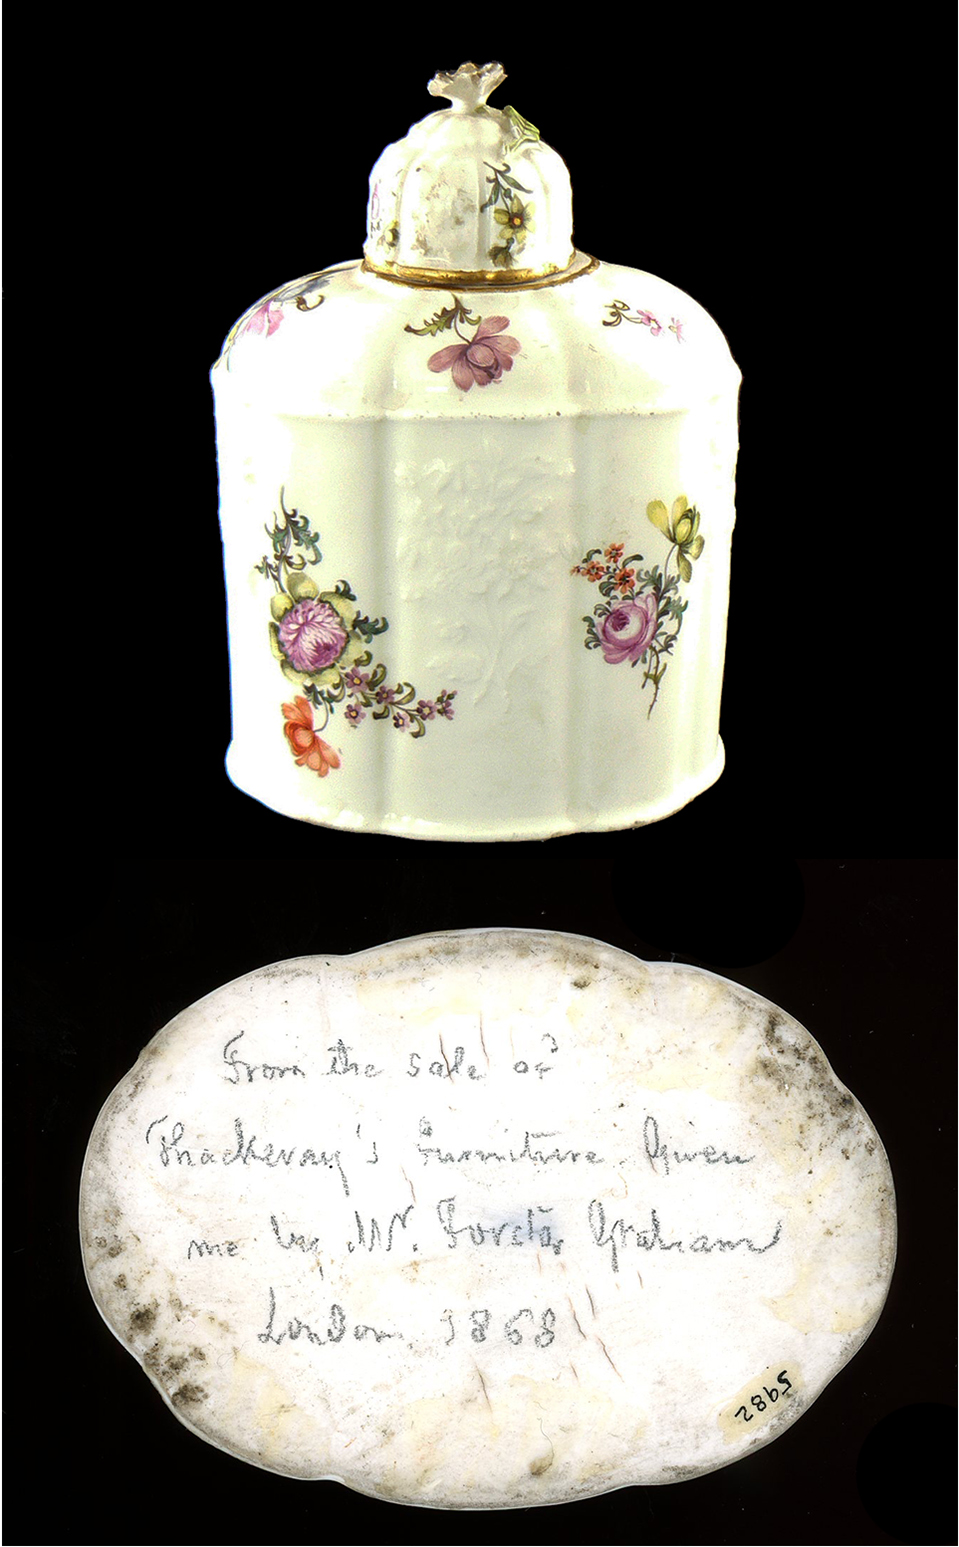 From the sale of
Thackeray's Furniture. Given
me by Mr. Graham
London, 1868
5982